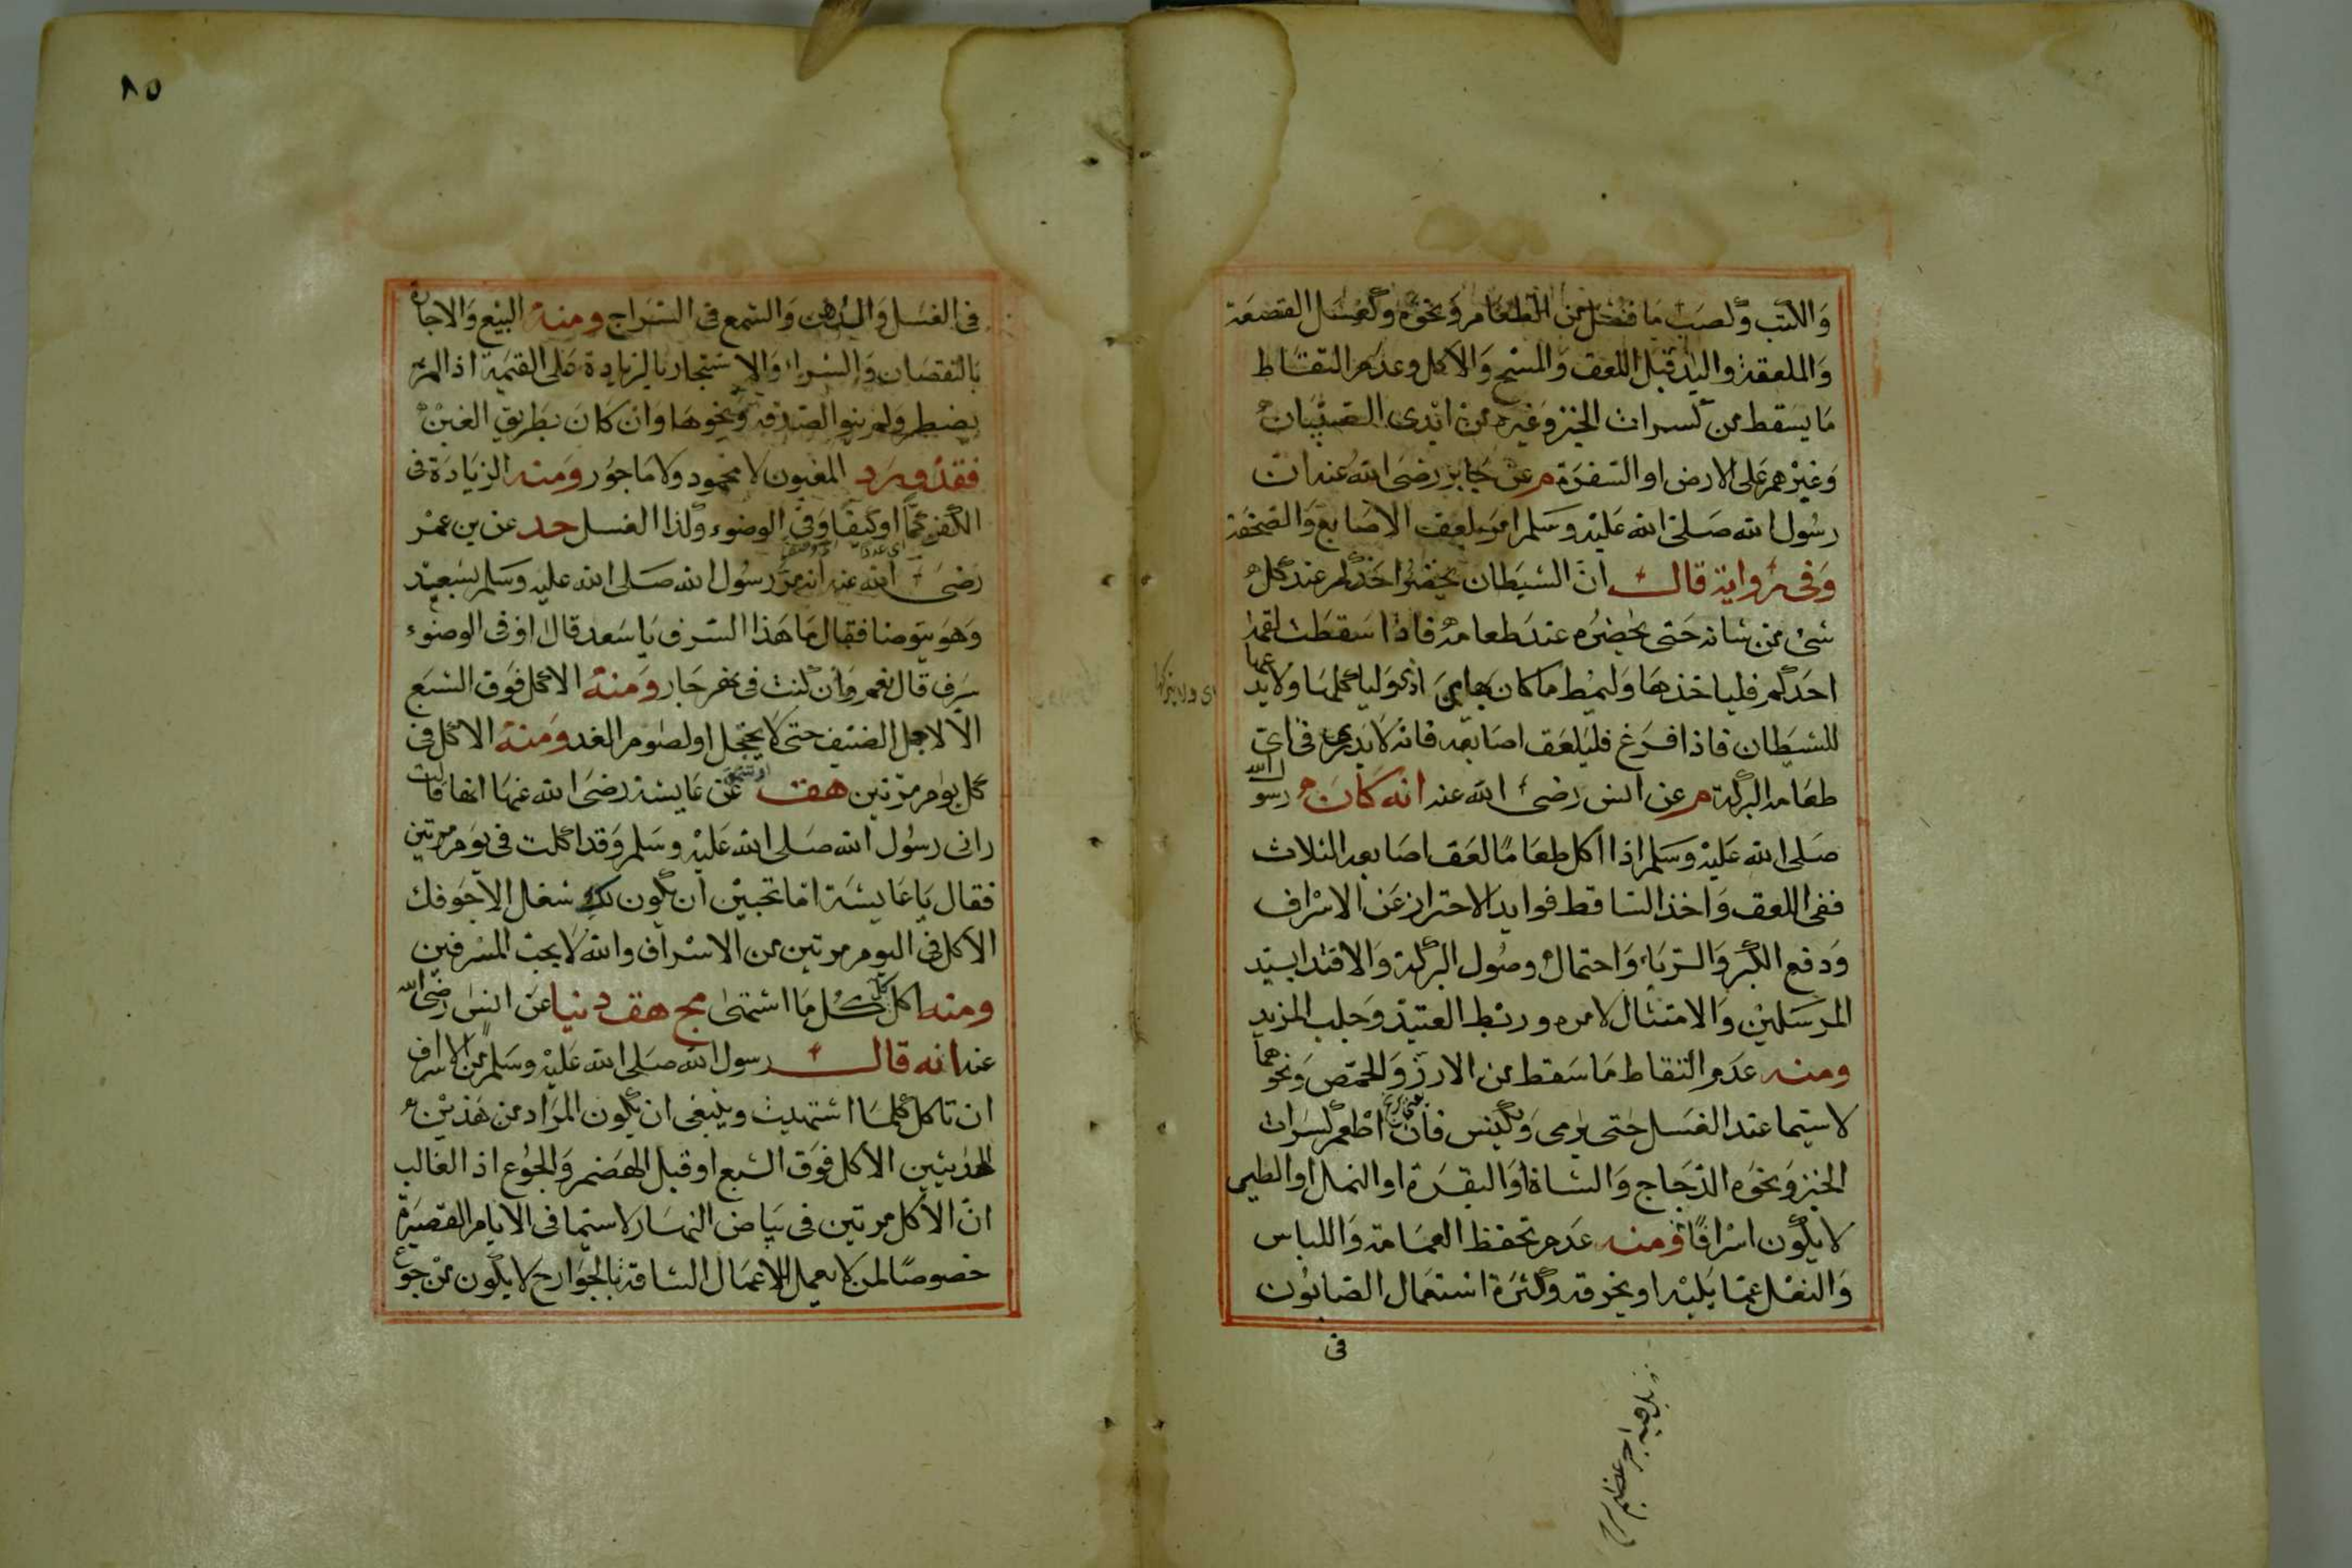 والكتب وكصب ما فضل من الطعام ونحوه وكغسل القصعة
والملعقة واليد قبل اللعق والمسح والاكل وعدم التقاط
ما يسقط من كسرات الخبز وغيره من ايدى الصبيان
وغيرهم على الارض او السفرة م عن جابر رضى الله عنه ان
رسول الله صلى الله عليه وسلم امر بلعق الاصابع والصحفة
وفى رواية قال ان الشيطان يحضر احدكم عند كل
شئ من شانه حتى يحضره عند طعامه فاذا سقطت لقمة
احدكم فلياخذها وليمط ما كان بها من اذى ولياكلها ولا يدعها
للشيطان فاذا فرغ فليلعق اصابعه فانه لا يدرى فى اى
طعامه البركة م عن انس رضى الله عنه انه كان رسول الله
صلى الله عليه وسلم اذا اكل طعاما لعق اصابعه الثلاث
ففى اللعق واخذ الساقط فوايد الاحتراز عن الاسراف
ودفع الكبر والرياء واحتمال وصول البركة والاقتدا بسيد
المرسلين والامتثال لامره وربط العتيد وجلب المزيد
ومنه عدم التقاط ما سقط من الارز والحمص ونحوهما
لا سيما عند الغسل حتى يرمى ويكنس فان اطعم كسرات
الخبز ونحوه الدجاج والشاة او البقرة او النمل او الطير
لا يكون اسرافا ومنه عدم تحفظ العمامة واللباس
والنعل عما يبليه او يخرقه وكثرة استعمال الصابون
فى
٨٥
فى الغسل والدهن والشمع فى السراج ومنه البيع والاجارة
بالنقصان والشراء والاستيجار بالزيادة على القيمة اذا لم
يضطر ولم ينو الصدقة ونحوها وان كان بطريق الغبن
فقد ورد المغبون لا محمود ولا ماجور ومنه الزيادة فى
الكفن كما او كيفا وفى الوضوء وكذا الغسل حد عن بن عمر
رضى الله عنه انه مر رسول الله صلى الله عليه وسلم بسعيد
وهو يتوضا فقال ما هذا السرف يا سعد قال اوفى الوضوء
سرف قال نعم وان كنت فى نهر جار ومنه الاكل فوق الشبع
الا لاجل الضيف حتى لا يخجل او لصوم الغد ومنه الاكل فى
كل يوم مرتين هق عن عايشة رضى الله عنها انها قالت
رانى رسول الله صلى الله عليه وسلم وقد اكلت فى يوم مرتين
فقال يا عايشة اما تحبين ان يكون لك شغل الا جوفك
الاكل فى اليوم مرتين من الاسراف والله لا يحب المسرفين
ومنه اكل كل ما اشتهى مج هق دنيا عن انس رضى الله
عنه انه قال رسول الله صلى الله عليه وسلم من الاسراف
ان تاكل كلما اشتهيت وينبغى ان يكون المراد من هذين
الحديثين الاكل فوق الشبع او قبل الهضم والجوع اذ الغالب
ان الاكل مرتين فى بياض النهار لا سيما فى الايام القصيرة
خصوصا لمن لا يعمل الاعمال الشاقة بالجوارح لا يكون عن جوع